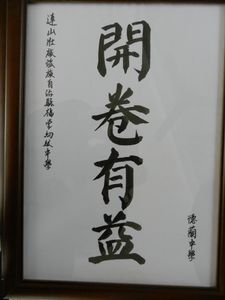 連山壯族瑤族自治縣福堂初級中學
開卷有益
德蘭中學